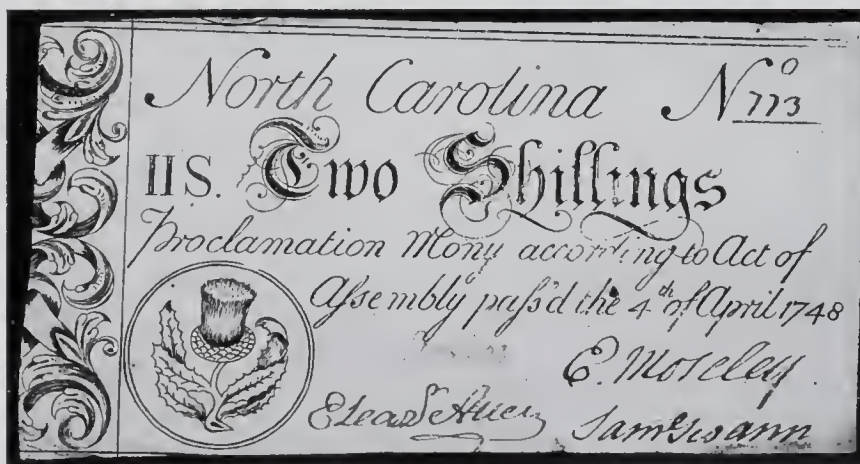 North Carolina No 773
IIS. Two Shillings
Proclamation Mony according to Act of
Aſsembly paſs'd the 4th of April 1748
E. Moseley
Eleaz.r Allen
Sam. Swann